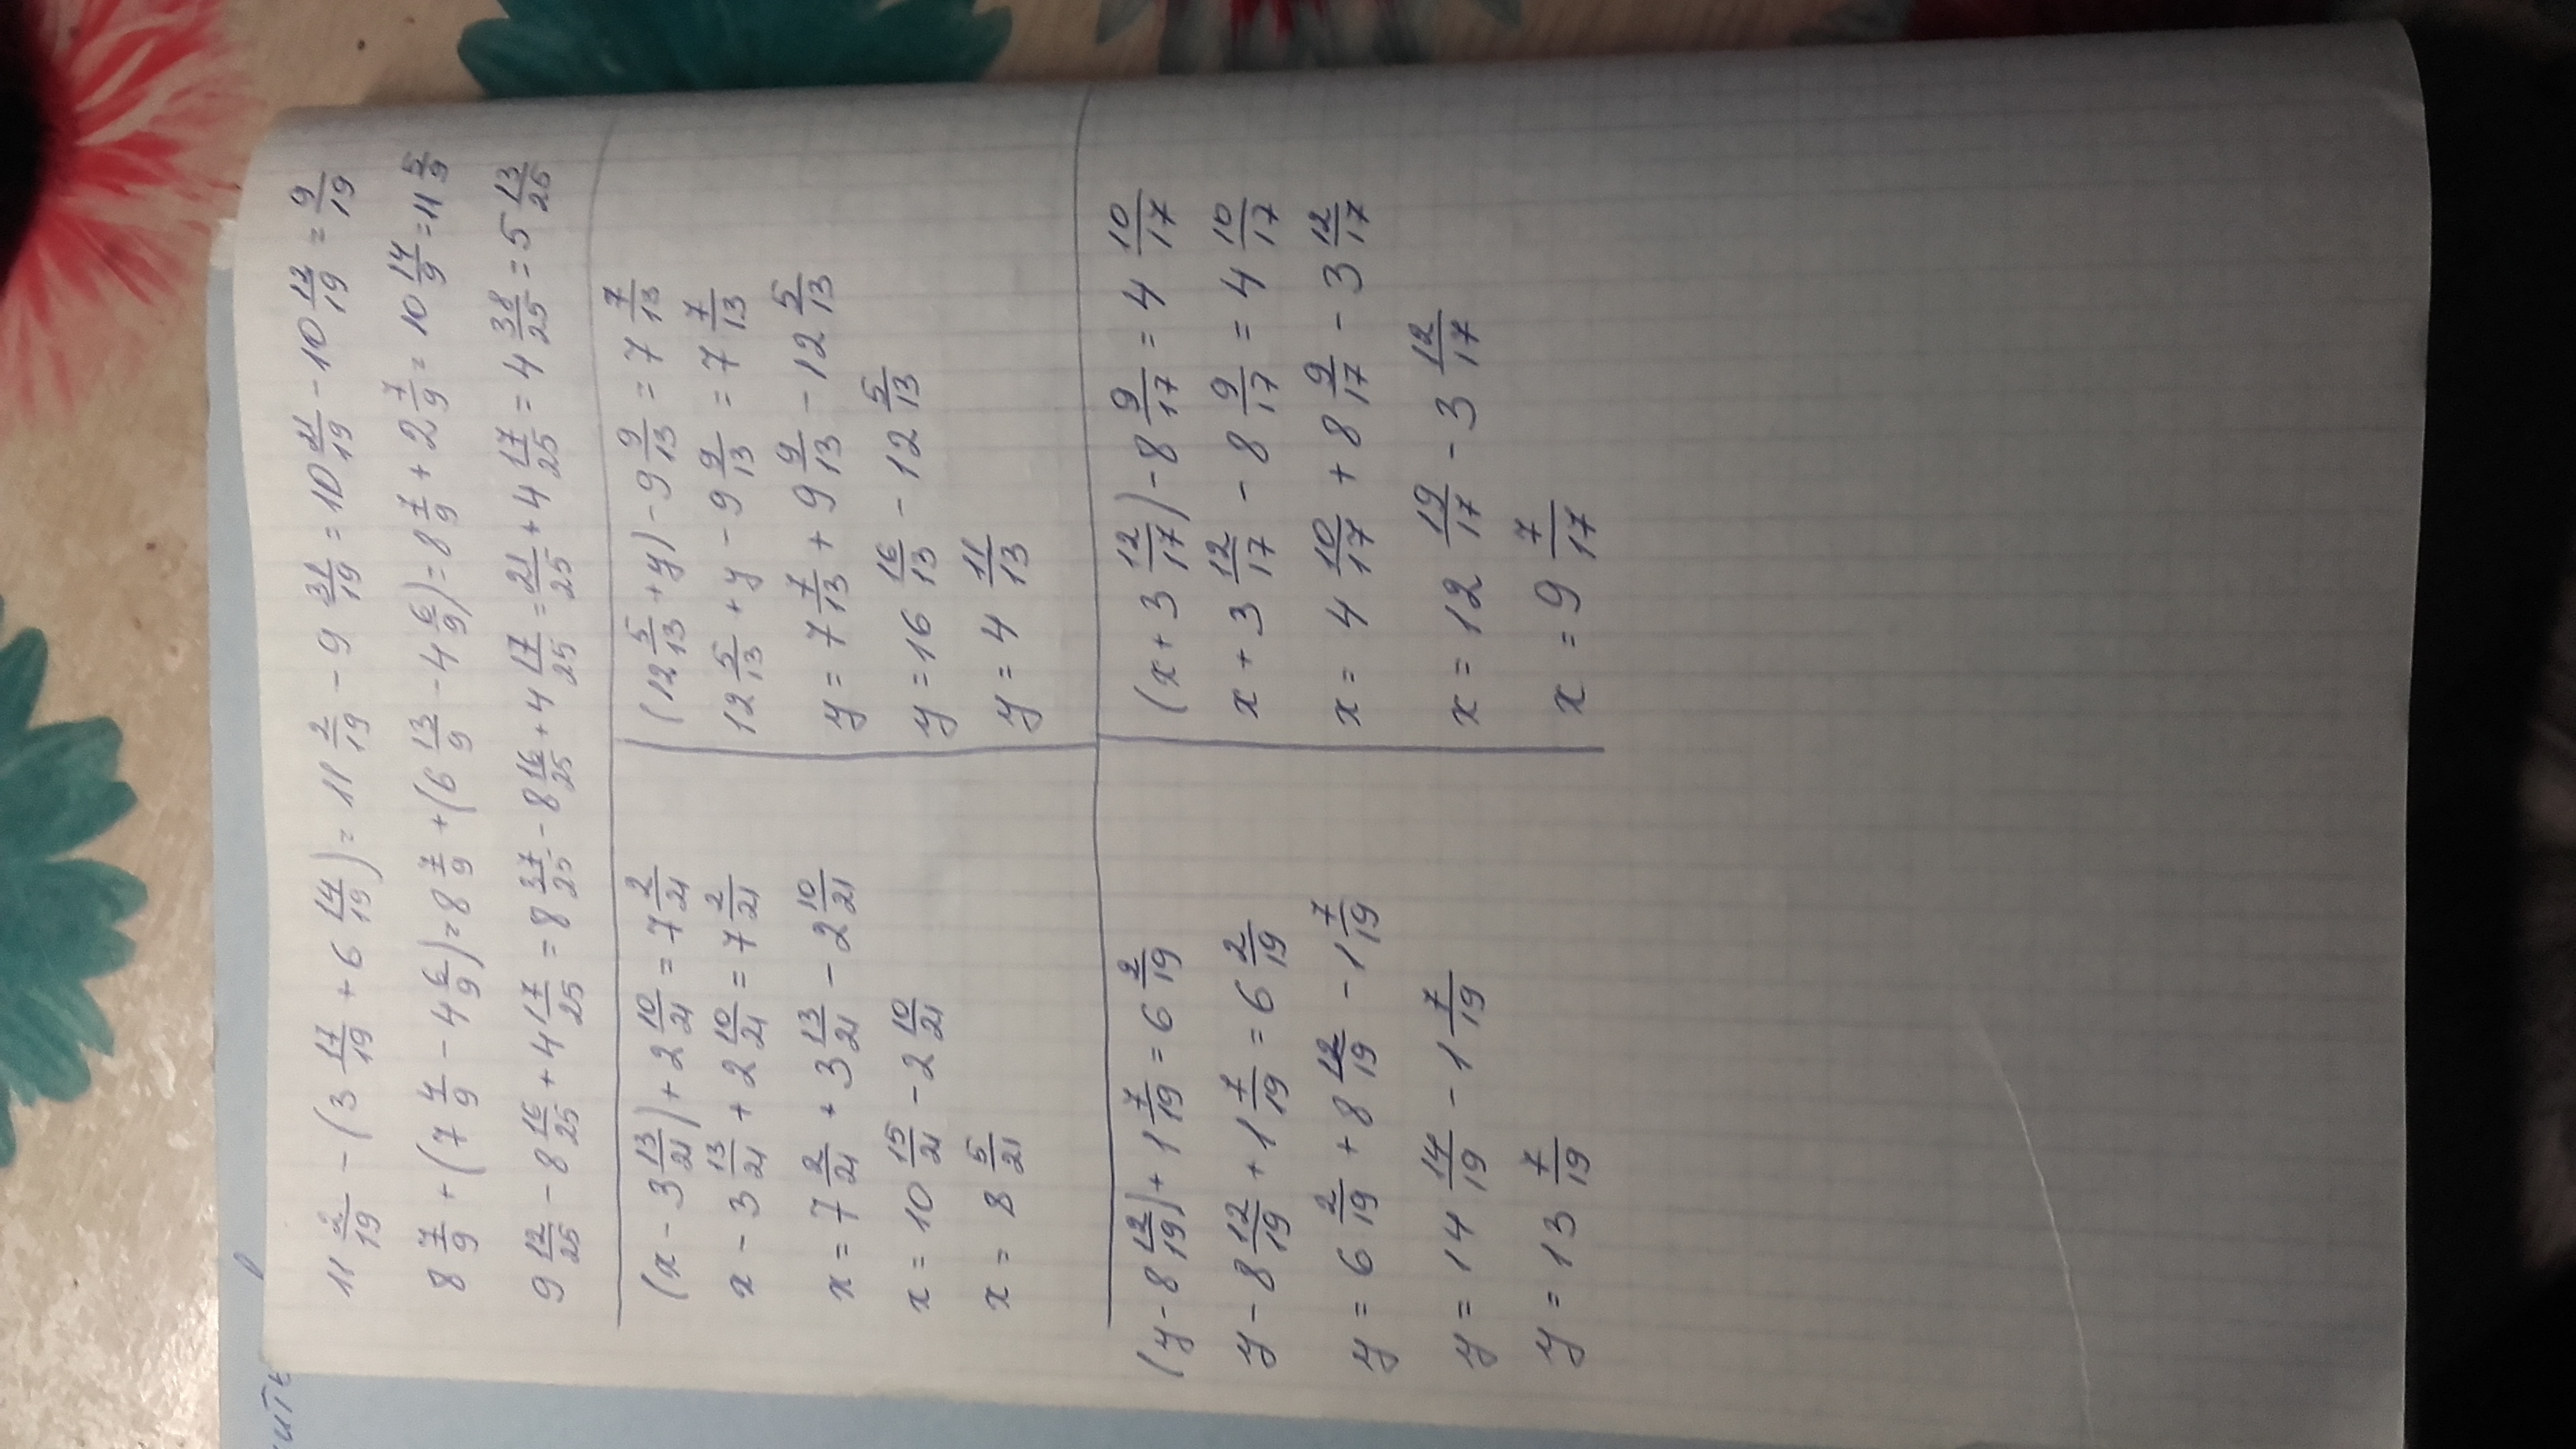 ить
11 2/19 - (3 17/19 + 6 14/19) = 11 2/19 - 9 31/19 = 10 21/19 - 10 12/19 = 9/19
8 7/9 + (7 4/9 - 4 6/9) = 8 7/9 + (6 13/9 - 4 6/9) = 8 7/9 + 2 7/9 = 10 14/9 = 11 5/9
9 12/25 - 8 16/25 + 4 17/25 = 8 37/25 - 8 16/25 + 4 17/25 = 21/25 + 4 17/25 = 4 38/25 = 5 13/25
(x - 3 13/21) + 2 10/21 = 7 2/21
x - 3 13/21 + 2 10/21 = 7 2/21
x = 7 2/21 + 3 13/21 - 2 10/21
x = 10 15/21 - 2 10/21
x = 8 5/21
(12 5/13 + y) - 9 9/13 = 7 7/13
12 5/13 + y - 9 9/13 = 7 7/13
y = 7 7/13 + 9 9/13 - 12 5/13
y = 16 16/13 - 12 5/13
y = 4 11/13
(y - 8 12/19) + 1 7/19 = 6 2/19
y - 8 12/19 + 1 7/19 = 6 2/19
y = 6 2/19 + 8 12/19 - 1 7/19
y = 14 14/19 - 1 7/19
y = 13 7/19
(x + 3 12/17) - 8 9/17 = 4 10/17
x + 3 12/17 - 8 9/17 = 4 10/17
x = 4 10/17 + 8 9/17 - 3 12/17
x = 12 19/17 - 3 12/17
x = 9 7/17